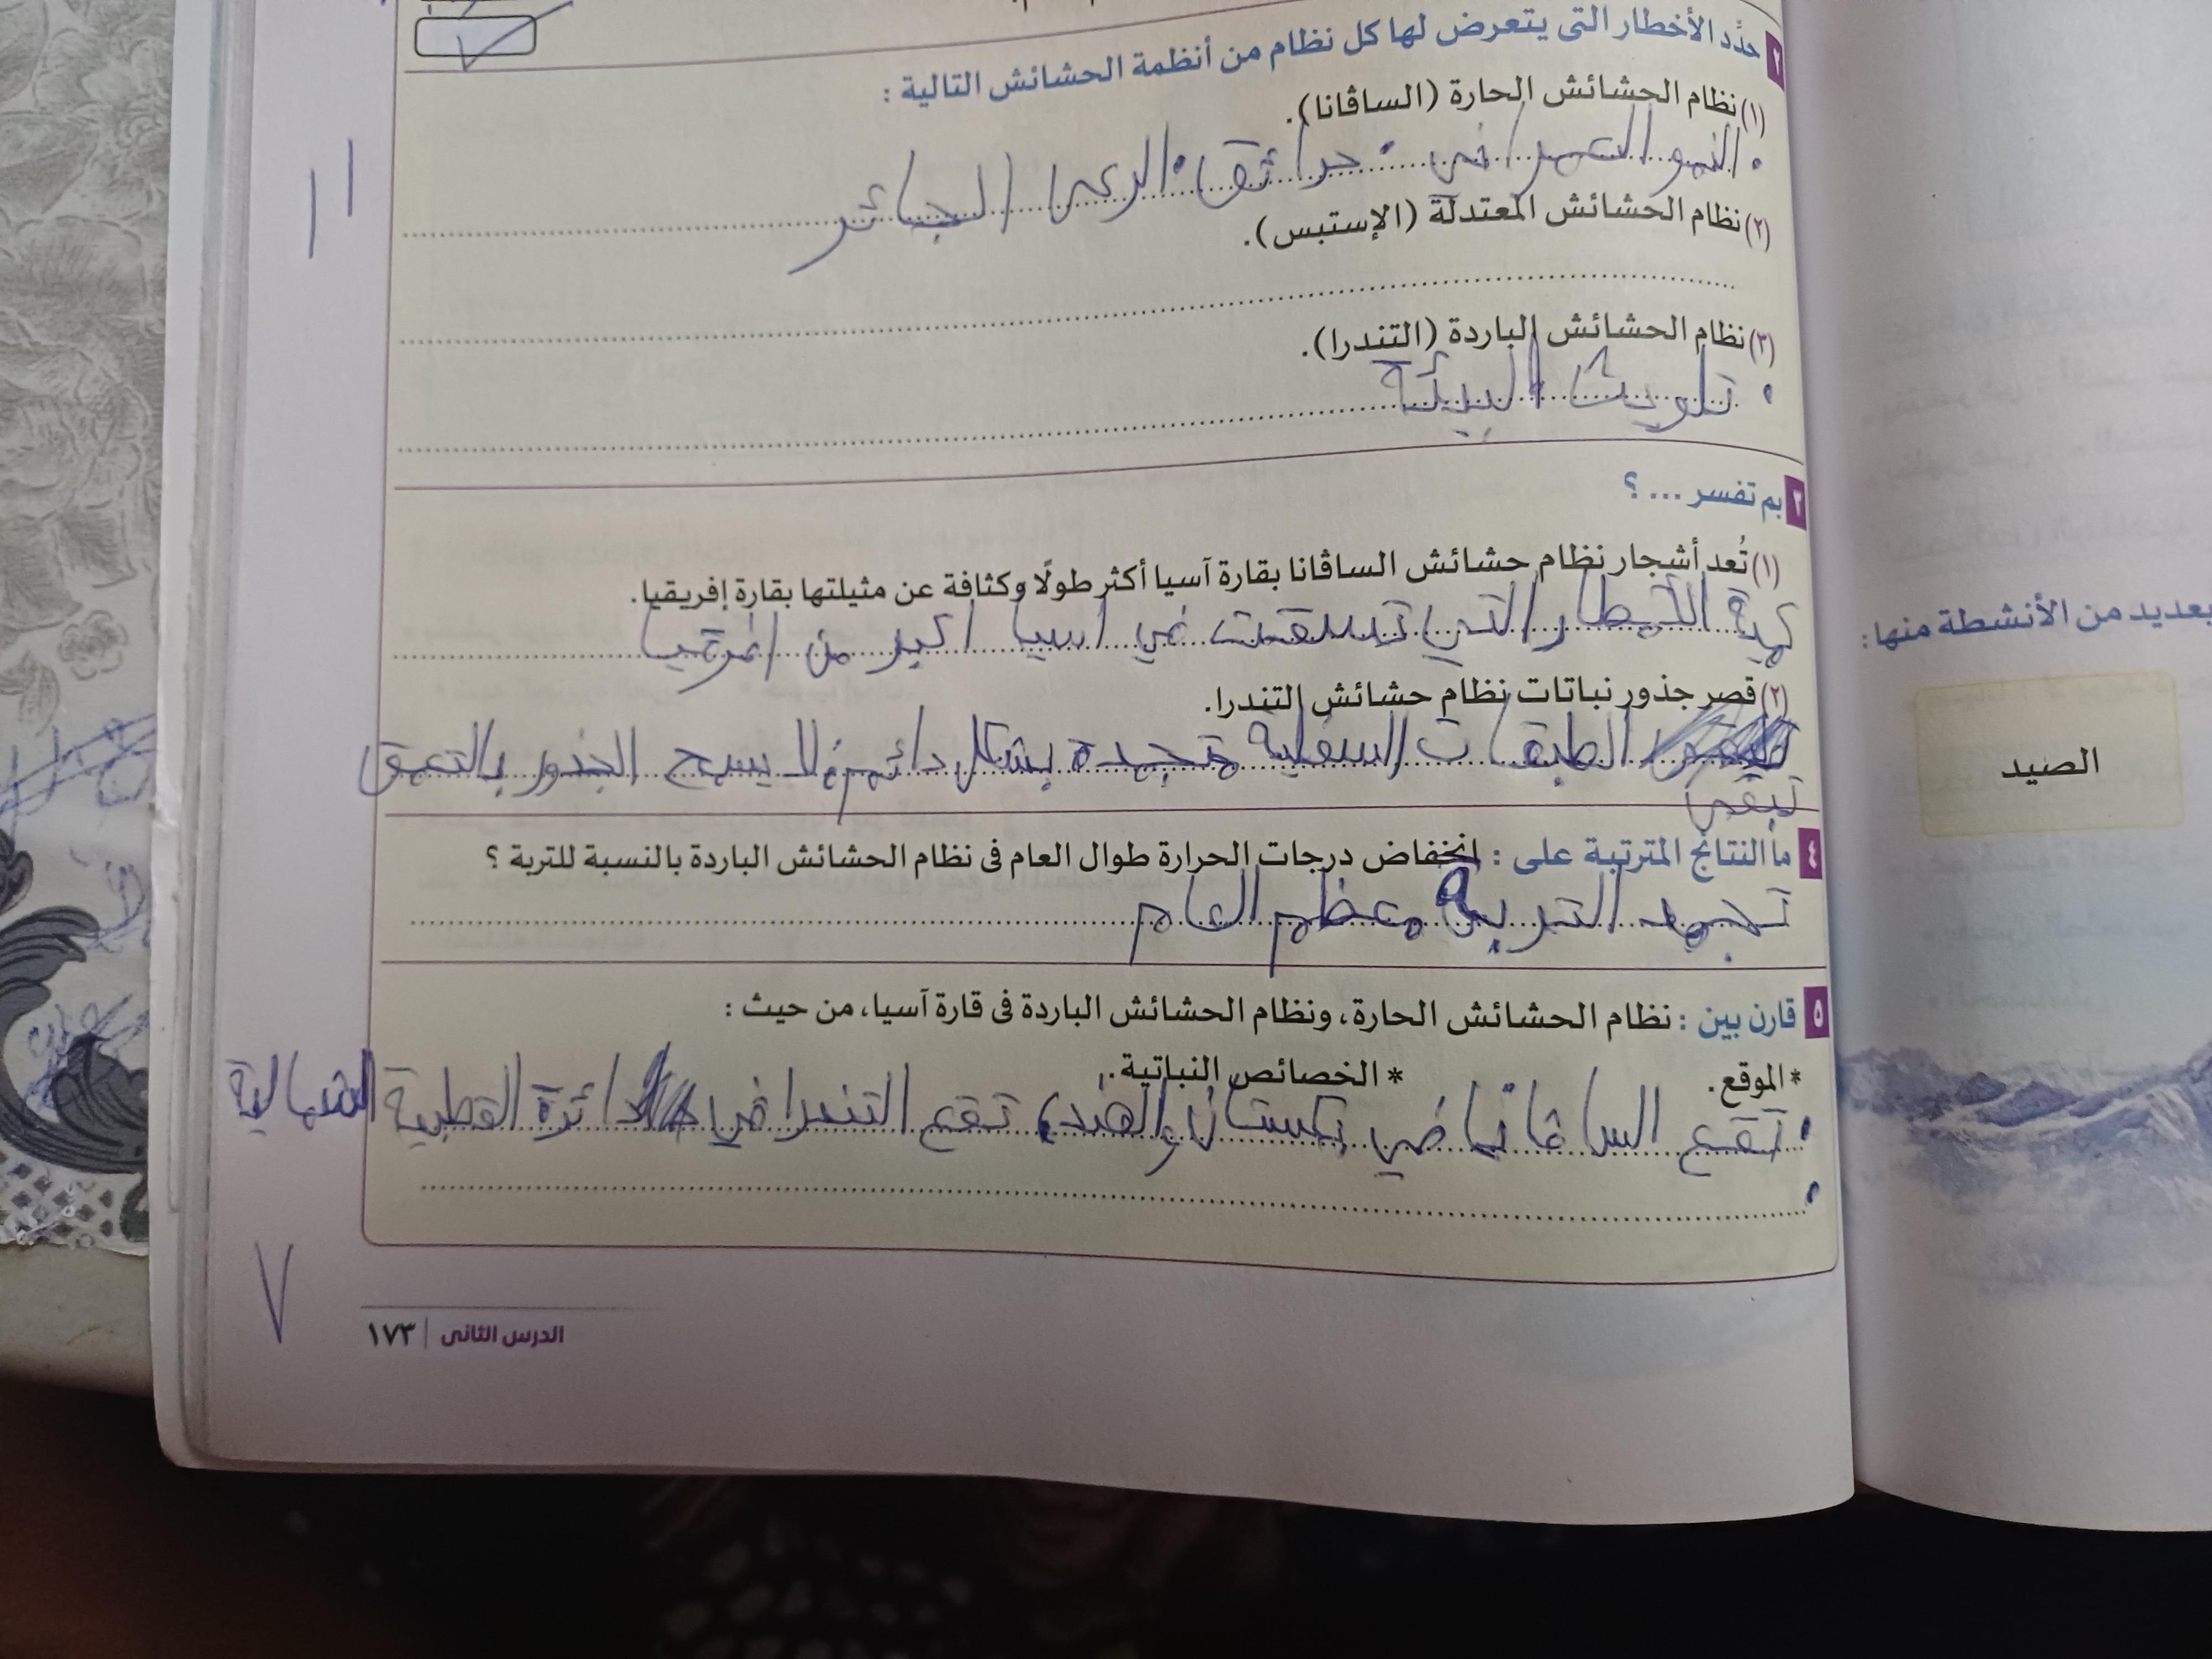 ٢ حدِّد الأخطار التى يتعرض لها كل نظام من أنظمة الحشائش التالية :
(١) نظام الحشائش الحارة (الساڤانا).
• النمو العمراني • حرائق • الرعى الجائر
(٢) نظام الحشائش المعتدلة (الإستبس).
(٣) نظام الحشائش الباردة (التندرا).
• تلويث البيئة
٣ بم تفسر ... ؟
(١) تُعد أشجار نظام حشائش الساڤانا بقارة آسيا أكثر طولًا وكثافة عن مثيلتها بقارة إفريقيا.
كمية الأمطار التي تسقط في اسيا اكبر من افرقيا
(٢) قصر جذور نباتات نظام حشائش التندرا.
تبقى الطبقات السفلية متجمدة بشكل دائم لا يسمح الجذور بالتعمق
٤ ما النتائج المترتبة على : انخفاض درجات الحرارة طوال العام فى نظام الحشائش الباردة بالنسبة للتربة ؟
تجمد التربة معظم العام
٥ قارن بين : نظام الحشائش الحارة، ونظام الحشائش الباردة فى قارة آسيا، من حيث :
* الموقع. * الخصائص النباتية.
• تقع الساڤانا في بكستان والهند، تقع التندرا في دائرة القطبية الشمالية
الدرس الثانى | ١٧٣
٧
بعديد من الأنشطة منها :
الصيد